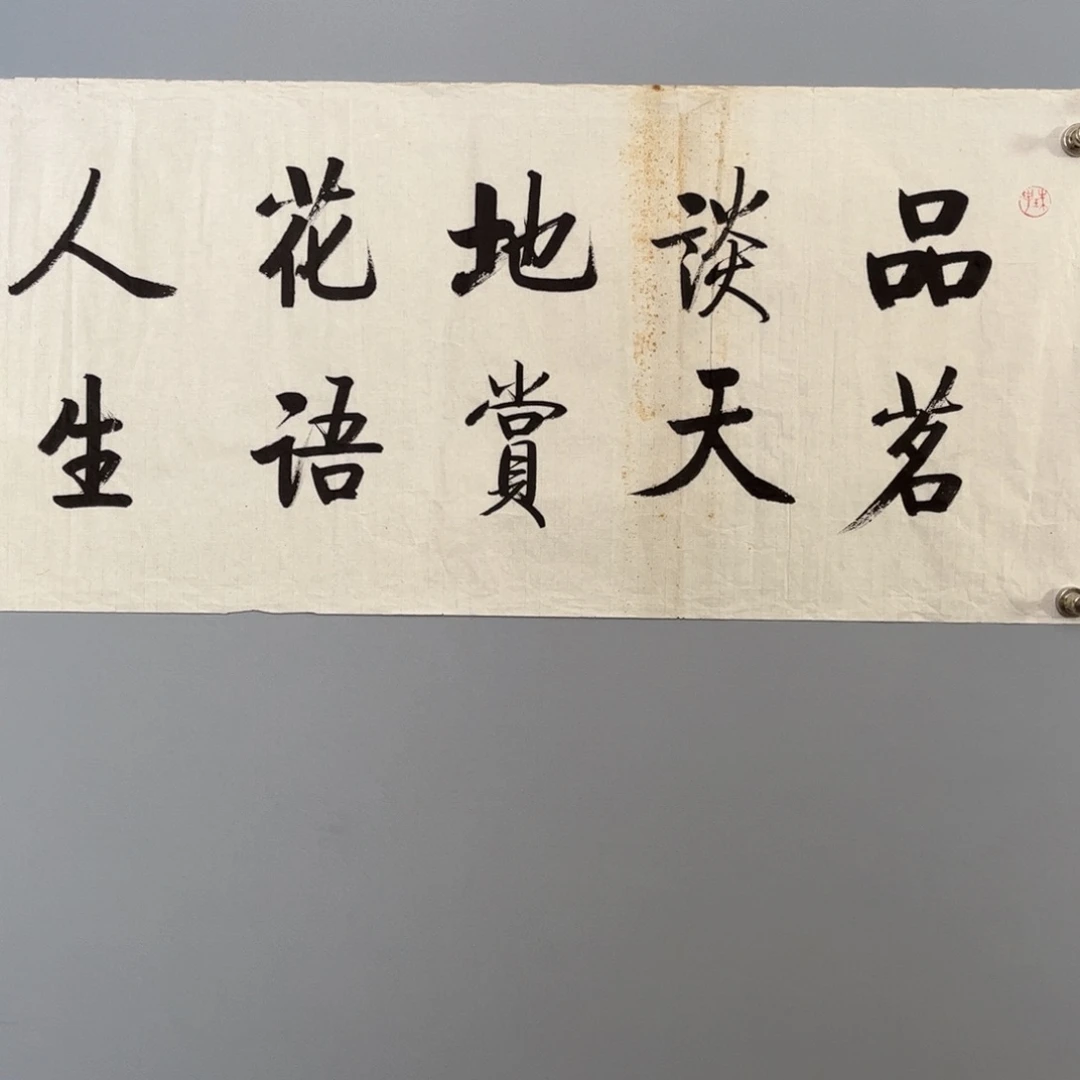 品茗
談天
地賞
花语
人生